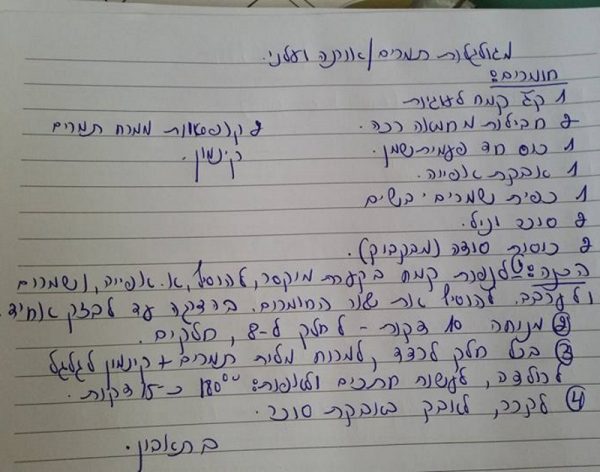 מגולגלות תמרים/אורנה ועלני.
חומרים:
1 קג קמח לעוגיות
2 חבילות מחמאה רכה.
2 קופסאות ממרח תמרים
1 כוס חד פעמית שמן.
קינמון.
1 אבקת אפייה.
1 כפית שמרים יבשים
2 סוכר וניל.
2 כוסות סודה (מבקבוק).
הכנה: 1 לנפות קמח בקערת מיקסר, להוסיף א. אפייה, ושמרים
ולערבב. להוסיף את שאר החומרים. בהדרגה עד לבצק אחיד.
2 מנוחה 10 דקות - לחלק ל-8 חלקים.
3 כל חלק לרדד, למרוח מלית תמרים + קינמון לגלגל
לרולדה, לעשות חתכים ולאפות: 180°° כ-15 דקות.
4 לקרר, לאבק באבקת סוכר.
בתאבון.